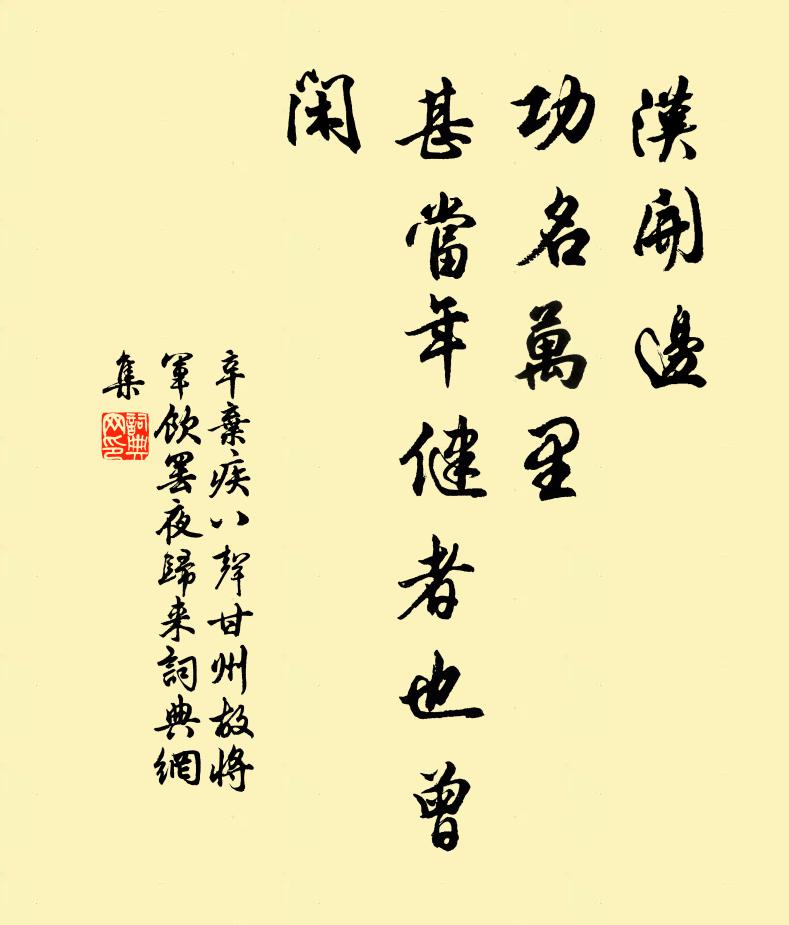 漢開邊
功名萬里
甚當年健者也曾
閑
辛棄疾八聲甘州故將
軍飲罷夜歸來詞典網
集
詞典
网印